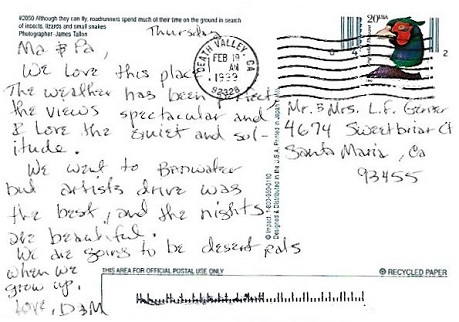 #2050 Although they can fly, roadrunners spend much of their time on the ground in search
of insects, lizards and small snakes
Photographer - James Tallon
Thursday
Ma & Pa,
We Love this place
The weather has been perfect
the views spectacular and
I love the quiet and sol-
itude.
We went to
but artists drive was
the best, and the nights
are beautiful.
We are going to be desert pals
when we
grow up.
Love, D&M
DEATH VALLEY, CA
FEB 19
AM
1999
92328
20 USA
0 4
2
Mr. & Mrs. L.F.
4674 Sweetbriar Ct
Santa Maria, Ca
93455
© Impact 1-800-950-0110
Designed & Distributed in the U.S.A. Printed in Japan
THIS AREA FOR OFFICIAL POSTAL USE ONLY
RECYCLED PAPER